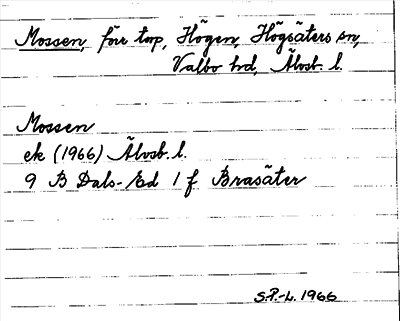 Mossen, förr torp, Högen, Högsäters sn,
Valbo hd, Älvsb. l.
Mossen
ek (1966) Älvsb. l.
9 B Dals-Ed 1 f Brasäter
S.P.-L. 1966